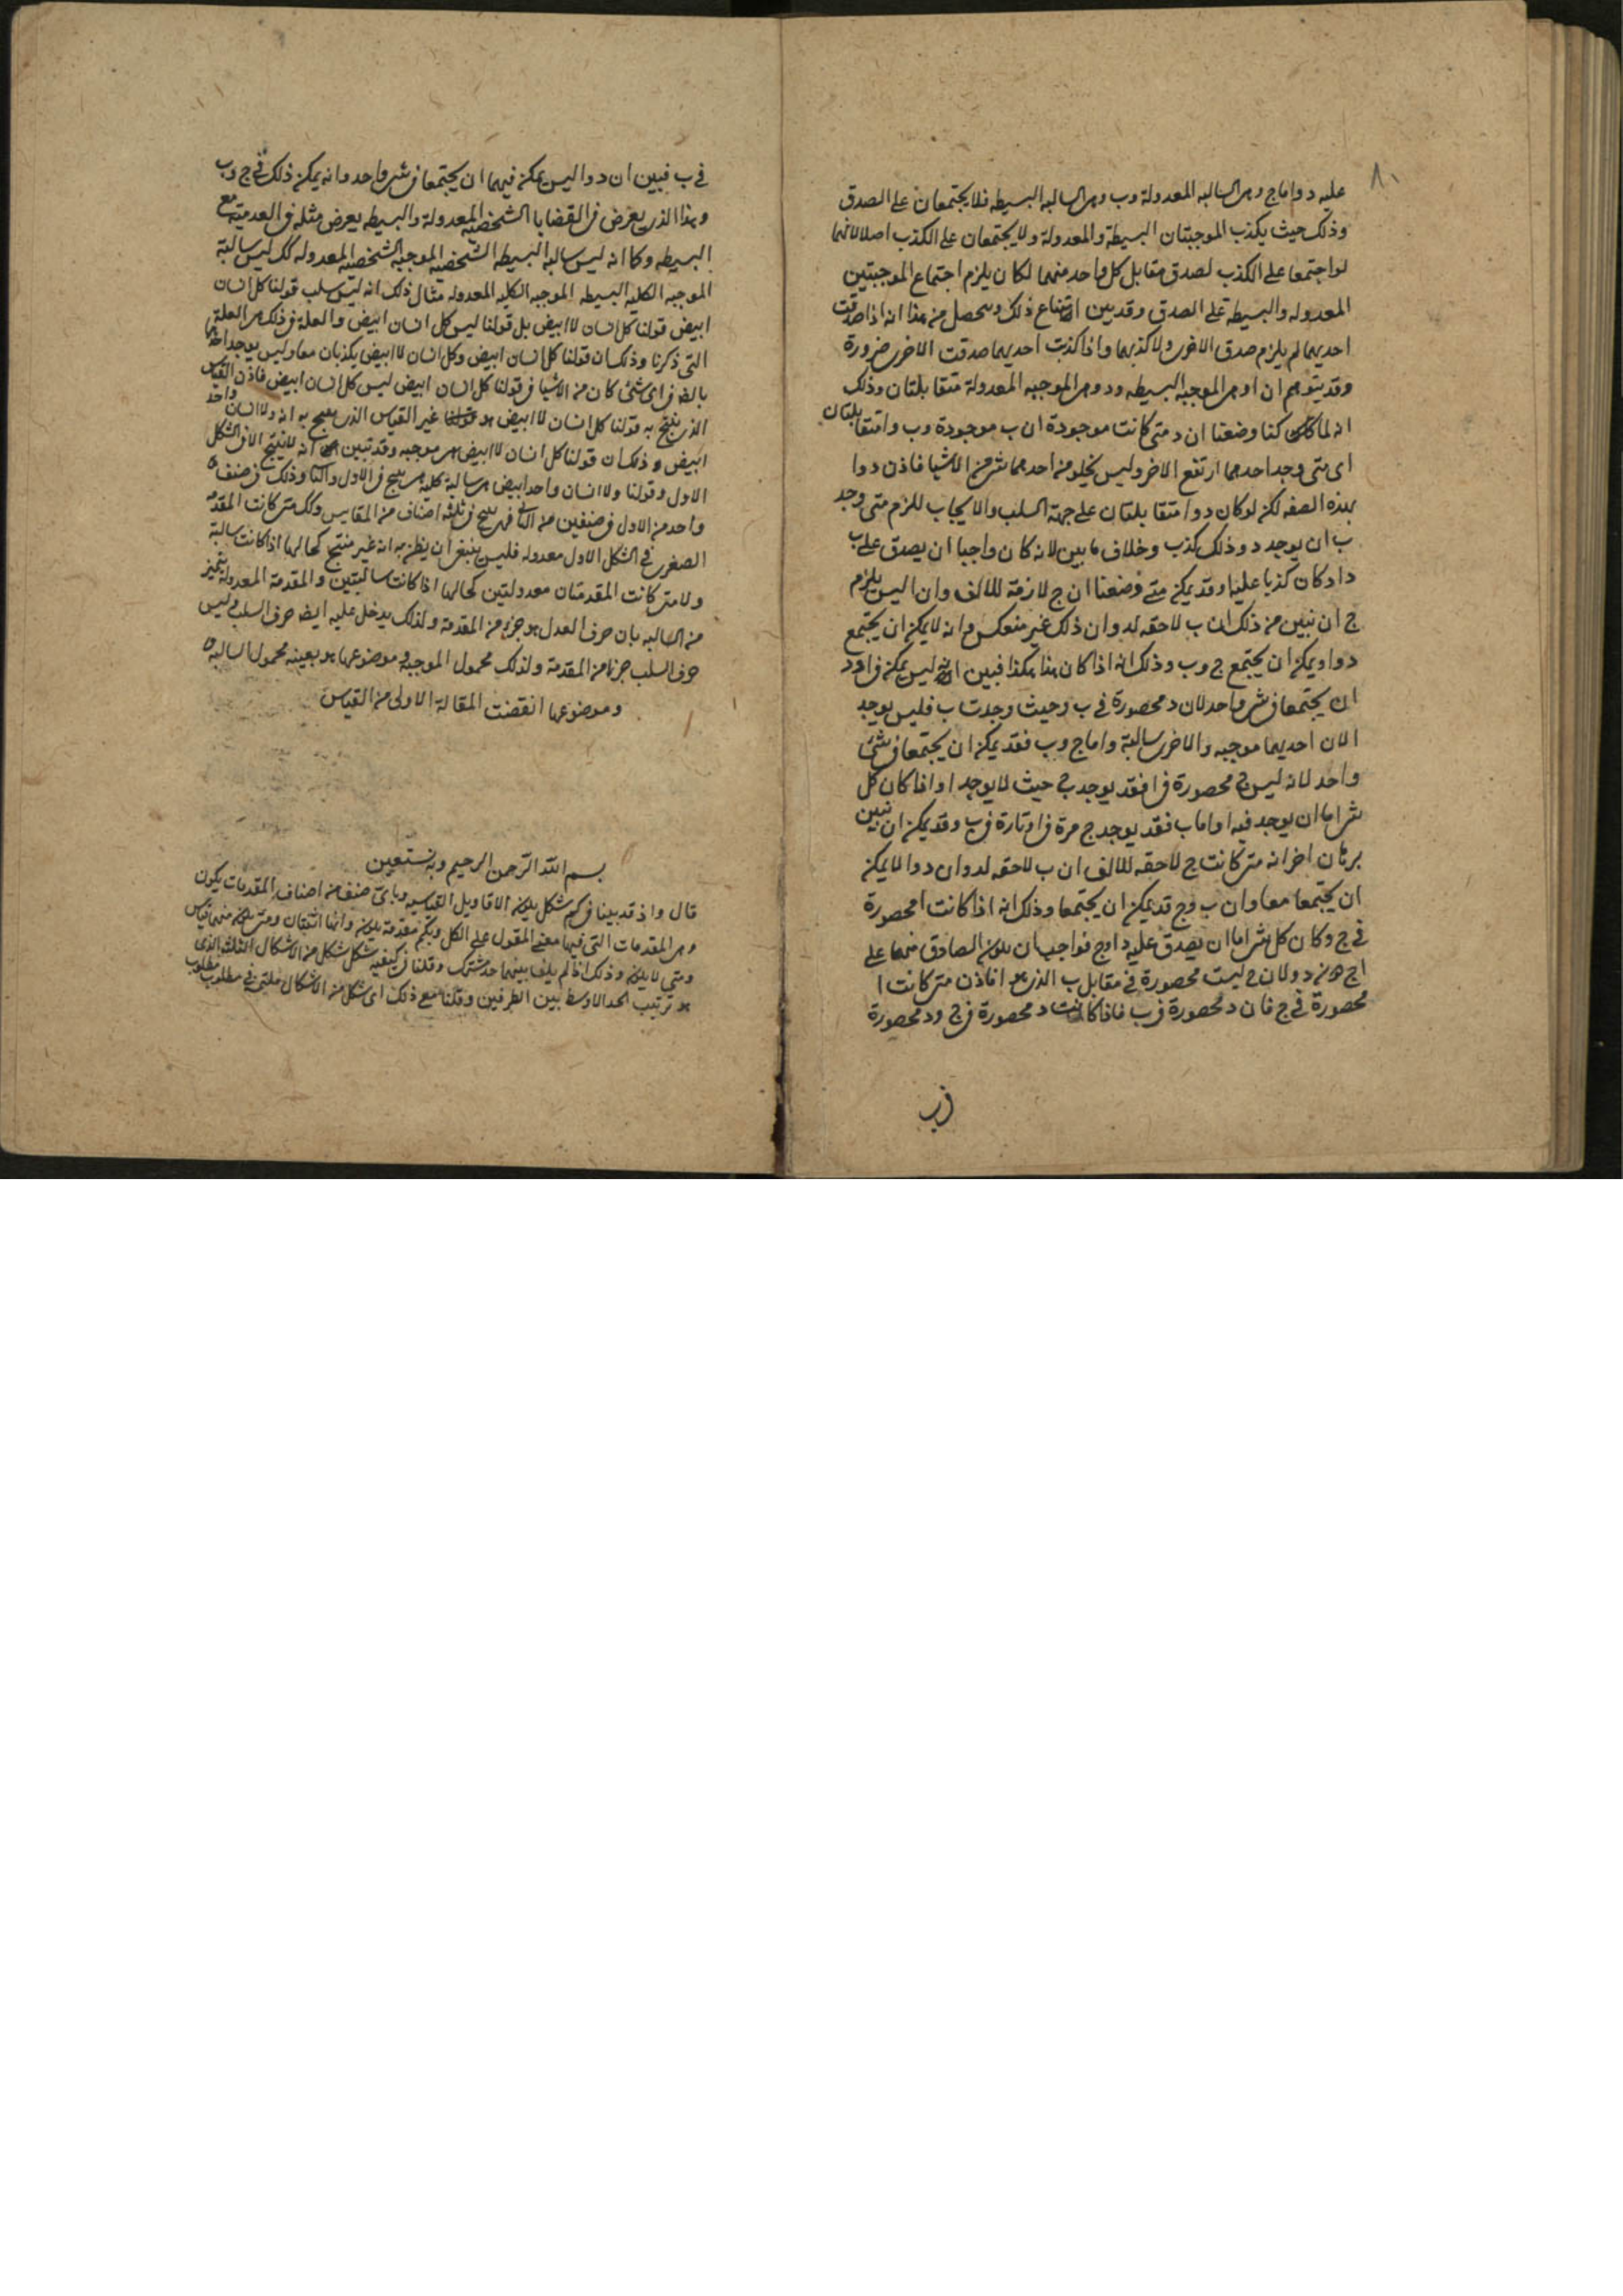 ٨٠
عليه د واما ج وهى السالبه المعدولة وب وهى السالبه البسيطه فلا يجتمعان على الصدق
وذلك حيث يكذب الموجبتان البسيطة والمعدولة ولا يجتمعان على الكذب اصلا لانهما
لو اجتمعا على الكذب لصدق مقابل كل واحد منهما لكان يلزم اجتماع الموجبتين
المعدوله والبسيطة على الصدق وقد بين امتناع ذلك ويحصل من هذا انه اذا صدقت
احديهما لم يلزم صدق الاخرى ولا كذبهما واذا كذبت احديهما صدقت الاخرى ضرورة
وقد يتوهم ان ا وهى الموجبه البسيطه ود وهى الموجبه المعدولة متقابلتان وذلك
انه لما كنا وضعنا ان د متى كانت موجودة ان ب موجودة وب وا متقابلتان
اى متى وجد احدهما ارتفع الاخر وليس يخلو من احدهما شى من الاشيا فاذن د وا
بهذه الصفه لكن لو كان د وا متقابلتان على جهة السلب والايجاب للزم متى وجد
ب ان يوجد د وذلك كذب وخلاف ما بين لانه كان واجبا ان يصدق على ب
د اد كان كذبا عليه ا وقد يمكن متى وضعنا ان ج لازمة للالف وان ا ليس يلزم
ج ان نبين من ذلك ان ب لاحقه لد وان ذلك غير منعكس وانه لا يمكن ان يجتمع
د وا ويمكن ان يجتمع ج وب وذلك انه اذا كان هذا هكذا فبين انه ليس يمكن فى ا ود
ان يجتمعا فى شى واحد لان د محصورة فى ب وحيث وجدت ب فليس يوجد
ا لان احديهما موجبه والاخرى سالبة واما ج وب فقد يمكن ان يجتمعا فى شئ
واحد لانه ليس ج محصورة فى ا فقد يوجد ج حيث لا يوجد ا واذا كان كل
شى اما ان يوجد فيه ا واما ب فقد يوجد ج مرة فى ا وتارة فى ب وقد يمكن ان نبين
برهان اخر انه متى كانت ج لاحقه للالف ان ب لاحقه لد وان د وا لا يمكن
ان يجتمعا معا وان ب وج قد يمكن ان يجتمعا وذلك انه اذا كانت ا محصورة
فى ج وكان كل شى اما ان يصدق عليه د او ج فواجب ان يكون الصادق منهما على
ا ج دون د ولان ج ليست محصورة فى مقابل ب الذى هو ا فاذن متى كانت ا
محصورة فى ج فان د محصورة فى ب فاذا كانت د محصورة فى ج ود محصورة
فى ب
فى ب فبين ان د وا ليس يمكن فيهما ان يجتمعا فى شى واحد وانه يمكن ذلك فى ج وب
وهذا الذى يعرض فى القضايا الشخصية المعدولة والبسيطه يعرض مثله فى العدمية مع
البسيطه وكما انه ليس سالبه البسيطه الشخصيه الموجبه الشخصيه المعدوله كك ليس سالبة
الموجبه الكليه البسيطه الموجبه الكليه المعدوله مثال ذلك انه ليس سلب قولنا كل انسان
ابيض قولنا كل انسان لا ابيض بل قولنا ليس كل انسان ابيض والعلة فى ذلك هى العلة
التى ذكرنا وذلك ان قولنا كل انسان ابيض وكل انسان لا ابيض يكذبان معا وليس يوجد
فى اى شئ كان من الاشيا فى قولنا كل انسان ابيض ليس كل انسان ابيض فاذن القياس
الذى ينتج به قولنا كل انسان لا ابيض هو غير القياس الذى ينتج به انه ولا انسان واحد
ابيض وذلك ان قولنا كل انسان لا ابيض هى موجبه وقد تبين انه لا ينتج الا فى الشكل
الاول وقولنا ولا انسان واحد ابيض هى سالبة كليه هى ينتج فى الاول والثا وذلك فى صنف
واحد من الاول فى صنفين من الثانى فهى ينتج فى ثلثه اصناف من المقاييس وكك متى كانت المقدمه
الصغرى فى الشكل الاول معدوله فليس ينبغى ان يظن به انه غير منتج كحالها اذا كانت سالبة
ولا متى كانت المقدمتان معدولتين كحالها اذا كانت سالبتين والمقدمة المعدولة يتميز
من السالبه بان حرف العدل هو جزء من المقدمة ولذلك يدخل عليه ايضا حرف السلب وليس
حرف السلب جزءا من المقدمة ولذلك محمول الموجبه وموضوعها هو بعينه محمول السالبه
وموضوعها انقضت المقالة الاولى من القياس
بسم الله الرحمن الرحيم وبه نستعين
قال واذ قد بينا فى كم شكل يكون الاقاويل القياسيه وباى صنف من اصناف المقدمات يكون
وهى المقدمات التى فيها معنى المقول على الكل وبكم مقدمة يكون وانها اثنتان ومتى يكون منهما قياس
ومتى لا يكون وذلك اذا لم يلف بينهما حد مشترك وقلنا فى كيفيه شكل شكل من الاشكال الثلثه الذى
هو ترتيب الحد الاوسط بين الطرفين وقلنا مع ذلك اى شكل من الاشكال يلتمس فى مطلوب مطلوب